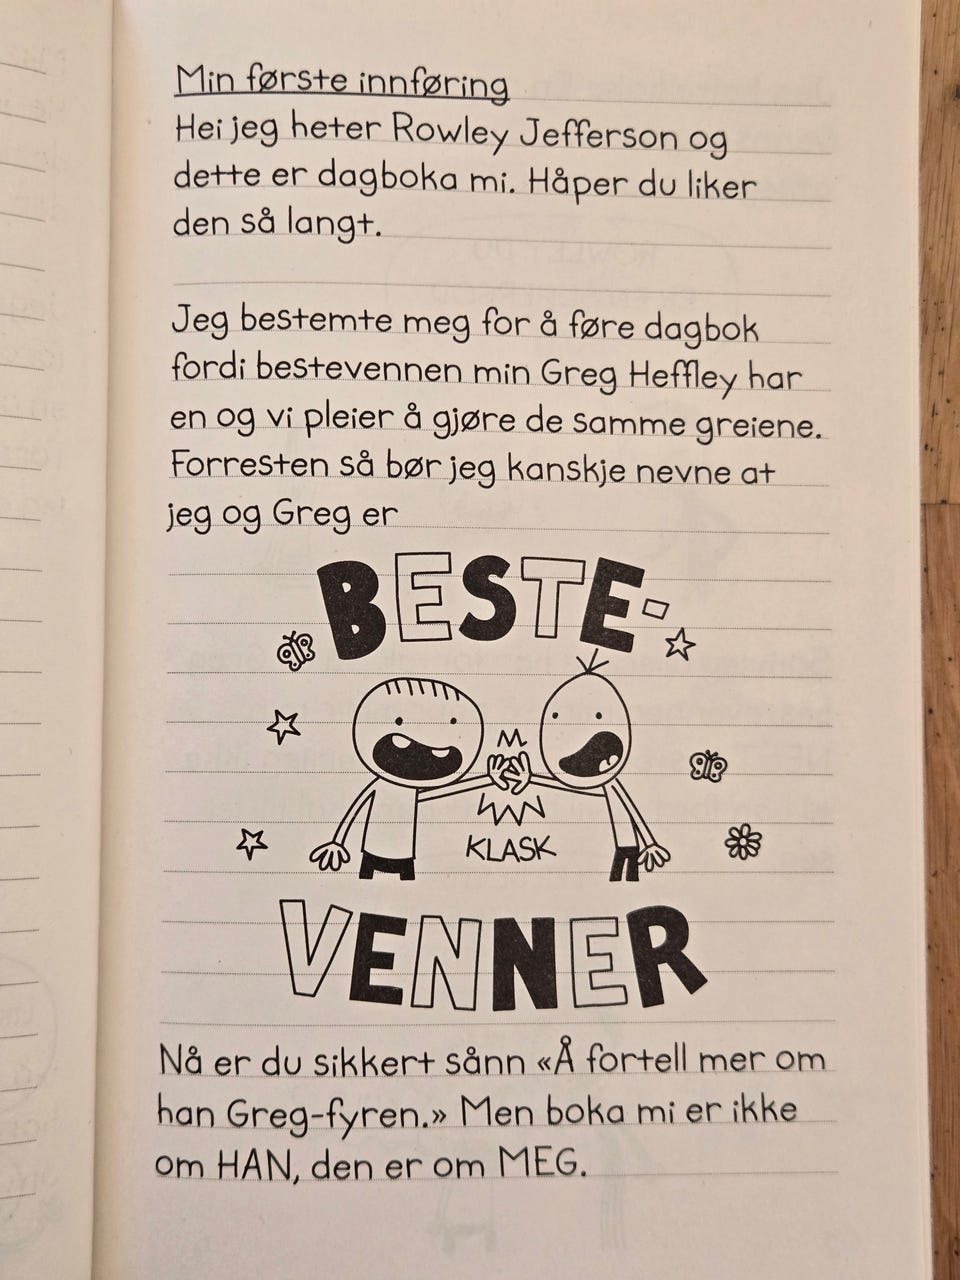 Min første innføring
Hei jeg heter Rowley Jefferson og
dette er dagboka mi. Håper du liker
den så langt.
Jeg bestemte meg for å føre dagbok
fordi bestevennen min Greg Heffley har
en og vi pleier å gjøre de samme greiene.
Forresten så bør jeg kanskje nevne at
jeg og Greg er
BESTE-
KLASK
VENNER
Nå er du sikkert sånn «Å fortell mer om
han Greg-fyren.» Men boka mi er ikke
om HAN, den er om MEG.